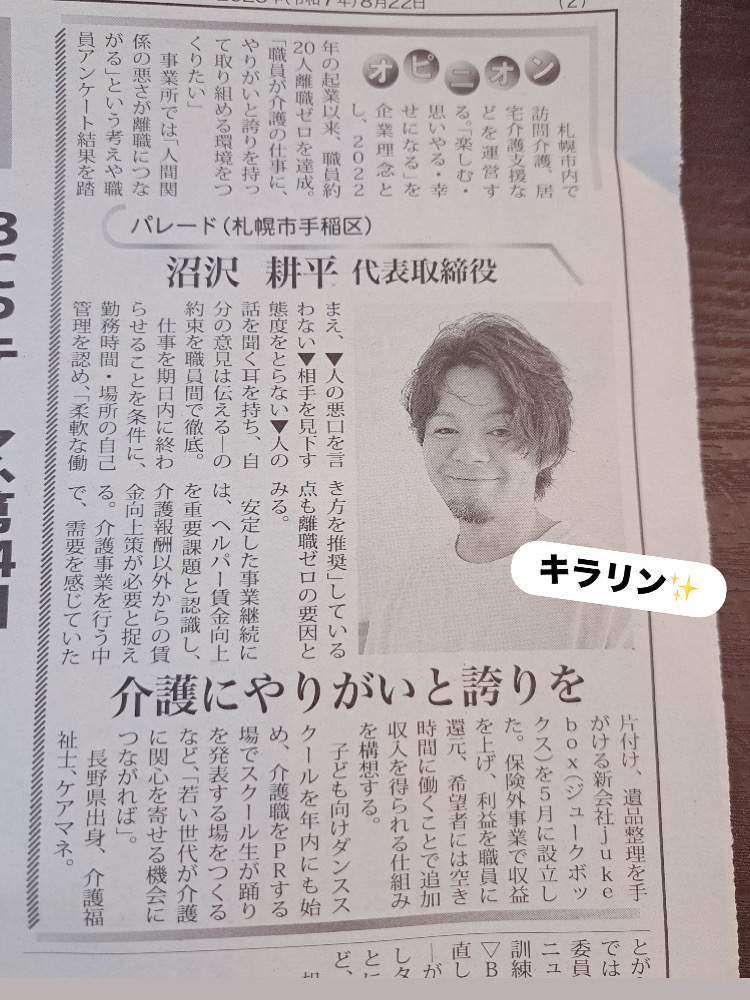 2025年(令和7年)8月22日
(2)
オピニオン
札幌市内で
訪問介護、居
宅介護支援な
どを運営す
る。「楽しむ・
思いやる・幸
せになる」を
企業理念と
し、2022
年の起業以来、職員約
20人離職ゼロを達成。
「職員が介護の仕事に、
やりがいと誇りを持っ
て取り組める環境をつ
くりたい」
事業所では「人間関
係の悪さが離職につな
がる」という考えや職
員アンケート結果を踏
パレード(札幌市手稲区)
沼沢 耕平 代表取締役
まえ、▼人の悪口を言
わない▼相手を見下す
態度をとらない▼人の
話を聞く耳を持ち、自
分の意見は伝える―の
約束を職員間で徹底。
仕事を期日内に終わ
らせることを条件に、
勤務時間・場所の自己
管理を認め、「柔軟な働
き方を推奨」している
点も離職ゼロの要因と
みる。
安定した事業継続に
は、ヘルパー賃金向上
を重要課題と認識し、
介護報酬以外からの賃
金向上策が必要と捉え
る。介護事業を行う中
で、需要を感じていた
キラリン✨
介護にやりがいと誇りを
片付け、遺品整理を手
がける新会社juke
box(ジュークボッ
クス)を5月に設立し
た。保険外事業で収益
を上げ、利益を職員に
還元、希望者には空き
時間に働くことで追加
収入を得られる仕組み
を構想する。
子ども向けダンスス
クールを年内にも始
め、介護職をPRする
場でスクール生が踊り
を発表する場をつくる
など、「若い世代が介護
に関心を寄せる機会に
つながれば」。
長野県出身、介護福
祉士、ケアマネ。
とが
では
委員
ニュ
訓練
▽B
直し
―が
しタ
とに
ど、